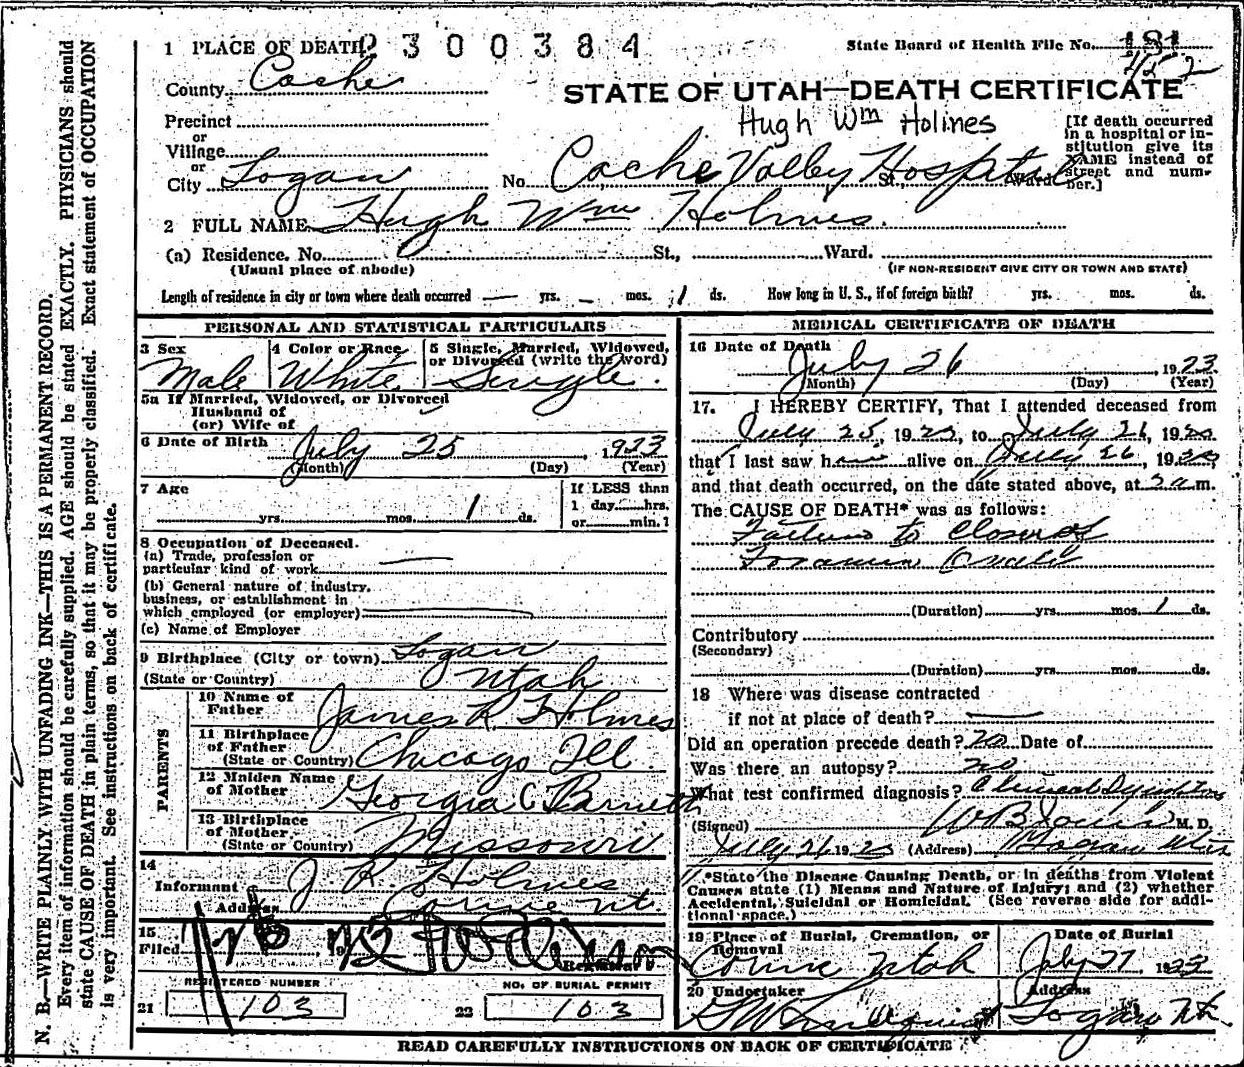 N. B.—WRITE PLAINLY WITH UNFADING INK—THIS IS A PERMANENT RECORD.
Every item of information should be carefully supplied. AGE should be stated EXACTLY. PHYSICIANS should
state CAUSE OF DEATH in plain terms, so that it may be properly classified. Exact statement of OCCUPATION
is very important. See instructions on back of certificate.
1 PLACE OF DEATH 2300384 State Board of Health File No. 181
County Cache
STATE OF UTAH—DEATH CERTIFICATE
Hugh Wm Holmes
Precinct
or
Village
or
City Logan No. Cache Valley Hospital St., Ward
[If death occurred
in a hospital or in-
stitution give its
NAME instead of
street and num-
ber.]
2 FULL NAME Hugh Wm Holmes.
(a) Residence. No. St., Ward.
(Usual place of abode) (IF NON-RESIDENT GIVE CITY OR TOWN AND STATE)
Length of residence in city or town where death occurred — yrs. – mos. 1 ds. How long in U. S., if of foreign birth? yrs. mos. ds.
PERSONAL AND STATISTICAL PARTICULARS
3 Sex 4 Color or Race 5 Single, Married, Widowed,
or Divorced (write the word)
Male White Single.
5a If Married, Widowed, or Divorced
Husband of
(or) Wife of
6 Date of Birth July 25, 1923
(Month) (Day) (Year)
7 Age If LESS than
1 day hrs.
yrs. mos. 1 ds. or min.?
8 Occupation of Deceased.
(a) Trade, profession or
particular kind of work —
(b) General nature of industry,
business, or establishment in
which employed (or employer)
(c) Name of Employer
9 Birthplace (City or town) Logan
(State or Country) Utah
PARENTS
10 Name of
Father James R. Holmes
11 Birthplace
of Father
(State or Country) Chicago Ill.
12 Maiden Name
of Mother Georgia C Barnett
13 Birthplace
of Mother
(State or Country) Missouri
14
Informant J. R. Holmes
Address Corinne Ut.
15
Filed , 19
Registrar
REGISTERED NUMBER NO. OF BURIAL PERMIT
21 103 22 103
MEDICAL CERTIFICATE OF DEATH
16 Date of Death
July 26, 1923
(Month) (Day) (Year)
17. I HEREBY CERTIFY, That I attended deceased from
July 25, 1923, to July 26, 1923
that I last saw h alive on July 26, 1923,
and that death occurred, on the date stated above, at 2 a m.
The CAUSE OF DEATH* was as follows:
Failure to Closure of
Foramen Ovale
(Duration) yrs. mos. 1 ds.
Contributory
(Secondary)
(Duration) yrs. mos. ds.
18 Where was disease contracted
if not at place of death? —
Did an operation precede death? No Date of
Was there an autopsy? no
What test confirmed diagnosis? Clinical Symptoms
(Signed) W B M. D.
July 26 1923 (Address) Logan Utah
*State the Disease Causing Death, or in deaths from Violent
Causes state (1) Means and Nature of Injury; and (2) whether
Accidental, Suicidal or Homicidal. (See reverse side for addi-
tional space.)
19 Place of Burial, Cremation, or
Removal Date of Burial
Corinne Utah July 27 1923
20 Undertaker Address
Logan Ut.
READ CAREFULLY INSTRUCTIONS ON BACK OF CERTIFICATE